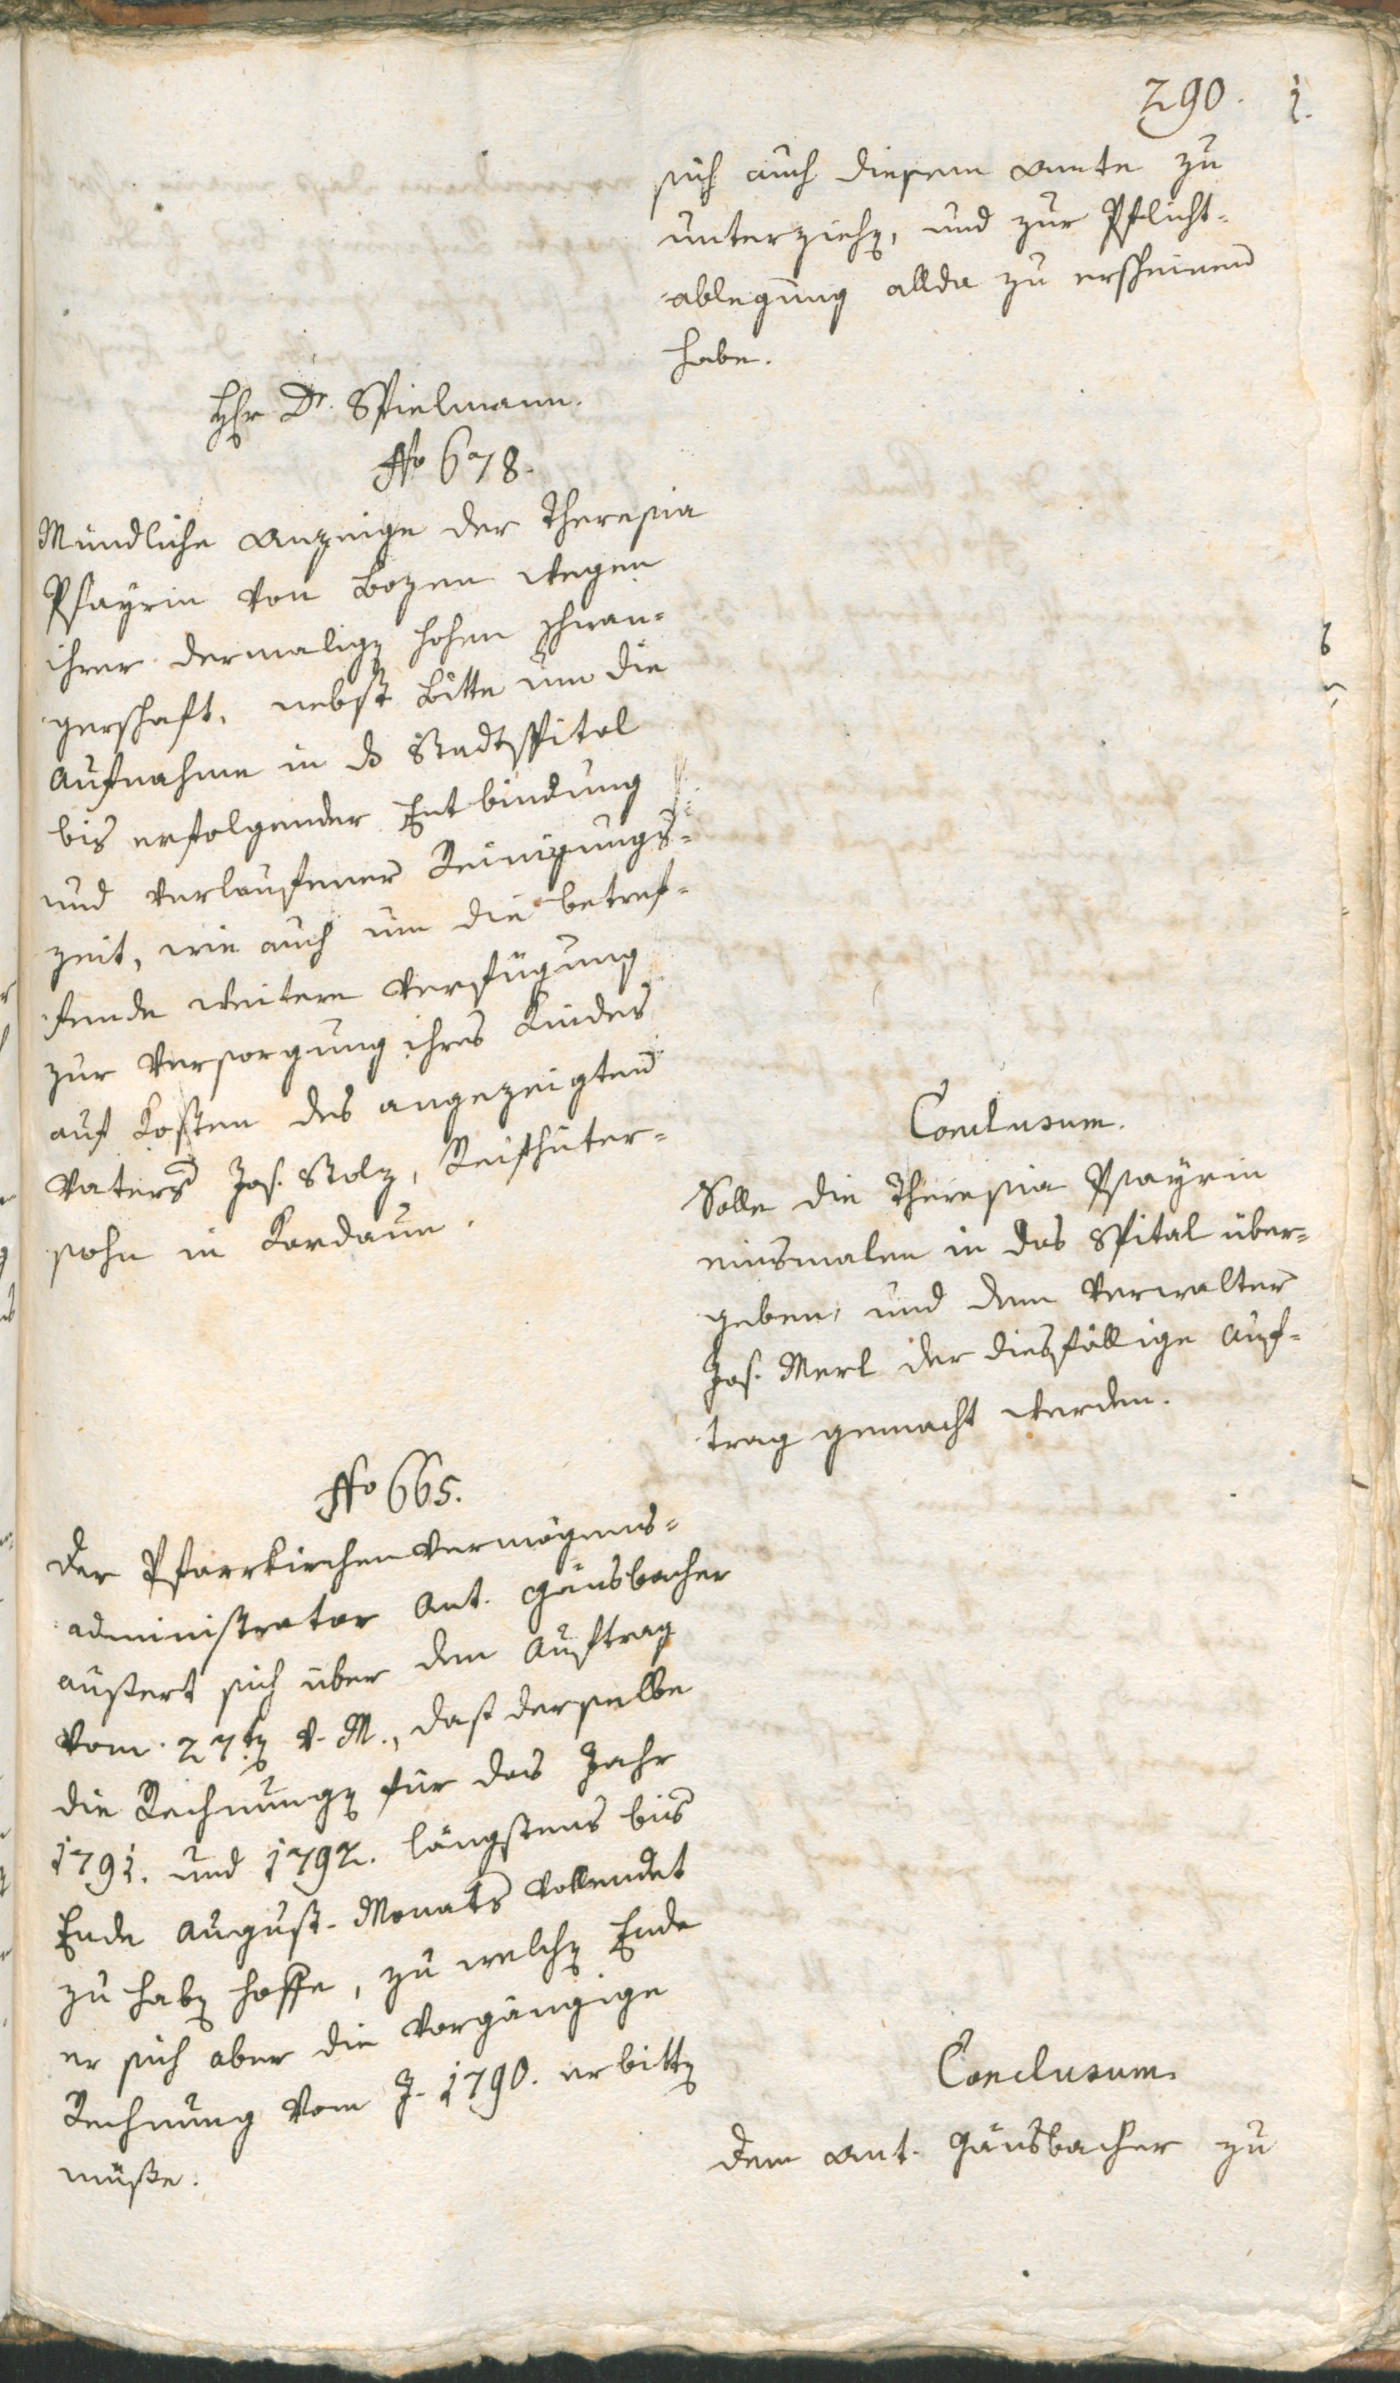 290.
sich auch diesem Amte zu
unterziehen, und zur Pflicht-
ablegung allda zu erscheinen
habe.
Hr Dr. Spielmann.
No 678.
Mündliche Anzeige der Theresia
Psayrin von Bozen wegen
ihrer dermaligen hohen Schwan-
gerschaft, nebst Bitte um die
Aufnahme in ds Stadtspital
bis erfolgender Entbindung
und verlaufener Reinigungs-
zeit, wie auch um die betref-
fende weitere Verfügung
zur Versorgung ihres Kindes
auf Kosten des angezeigten
Vaters Jos. Stolz, Reifhüter-
sohn in Kardaun.
Conclusum.
Solle die Theresia Psayrin
einsmalen in das Spital über-
geben, und dem Verwalter
Jos. Merl der diesfällige Auf-
trag gemacht werden.
No 665.
Der Pfarrkirchenvermögens-
administrator Ant. Gänsbacher
äußert sich über den Auftrag
vom 27ten v. M., daß derselbe
die Rechnungen für das Jahr
1791. und 1792. längstens bis
Ende August-Monats vollendet
zu haben hoffe, zu welchen Ende
er sich aber die vorgängige
Rechnung vom J. 1790. erbitten
müße.
Conclusum.
Dem Ant. Gänsbacher zu